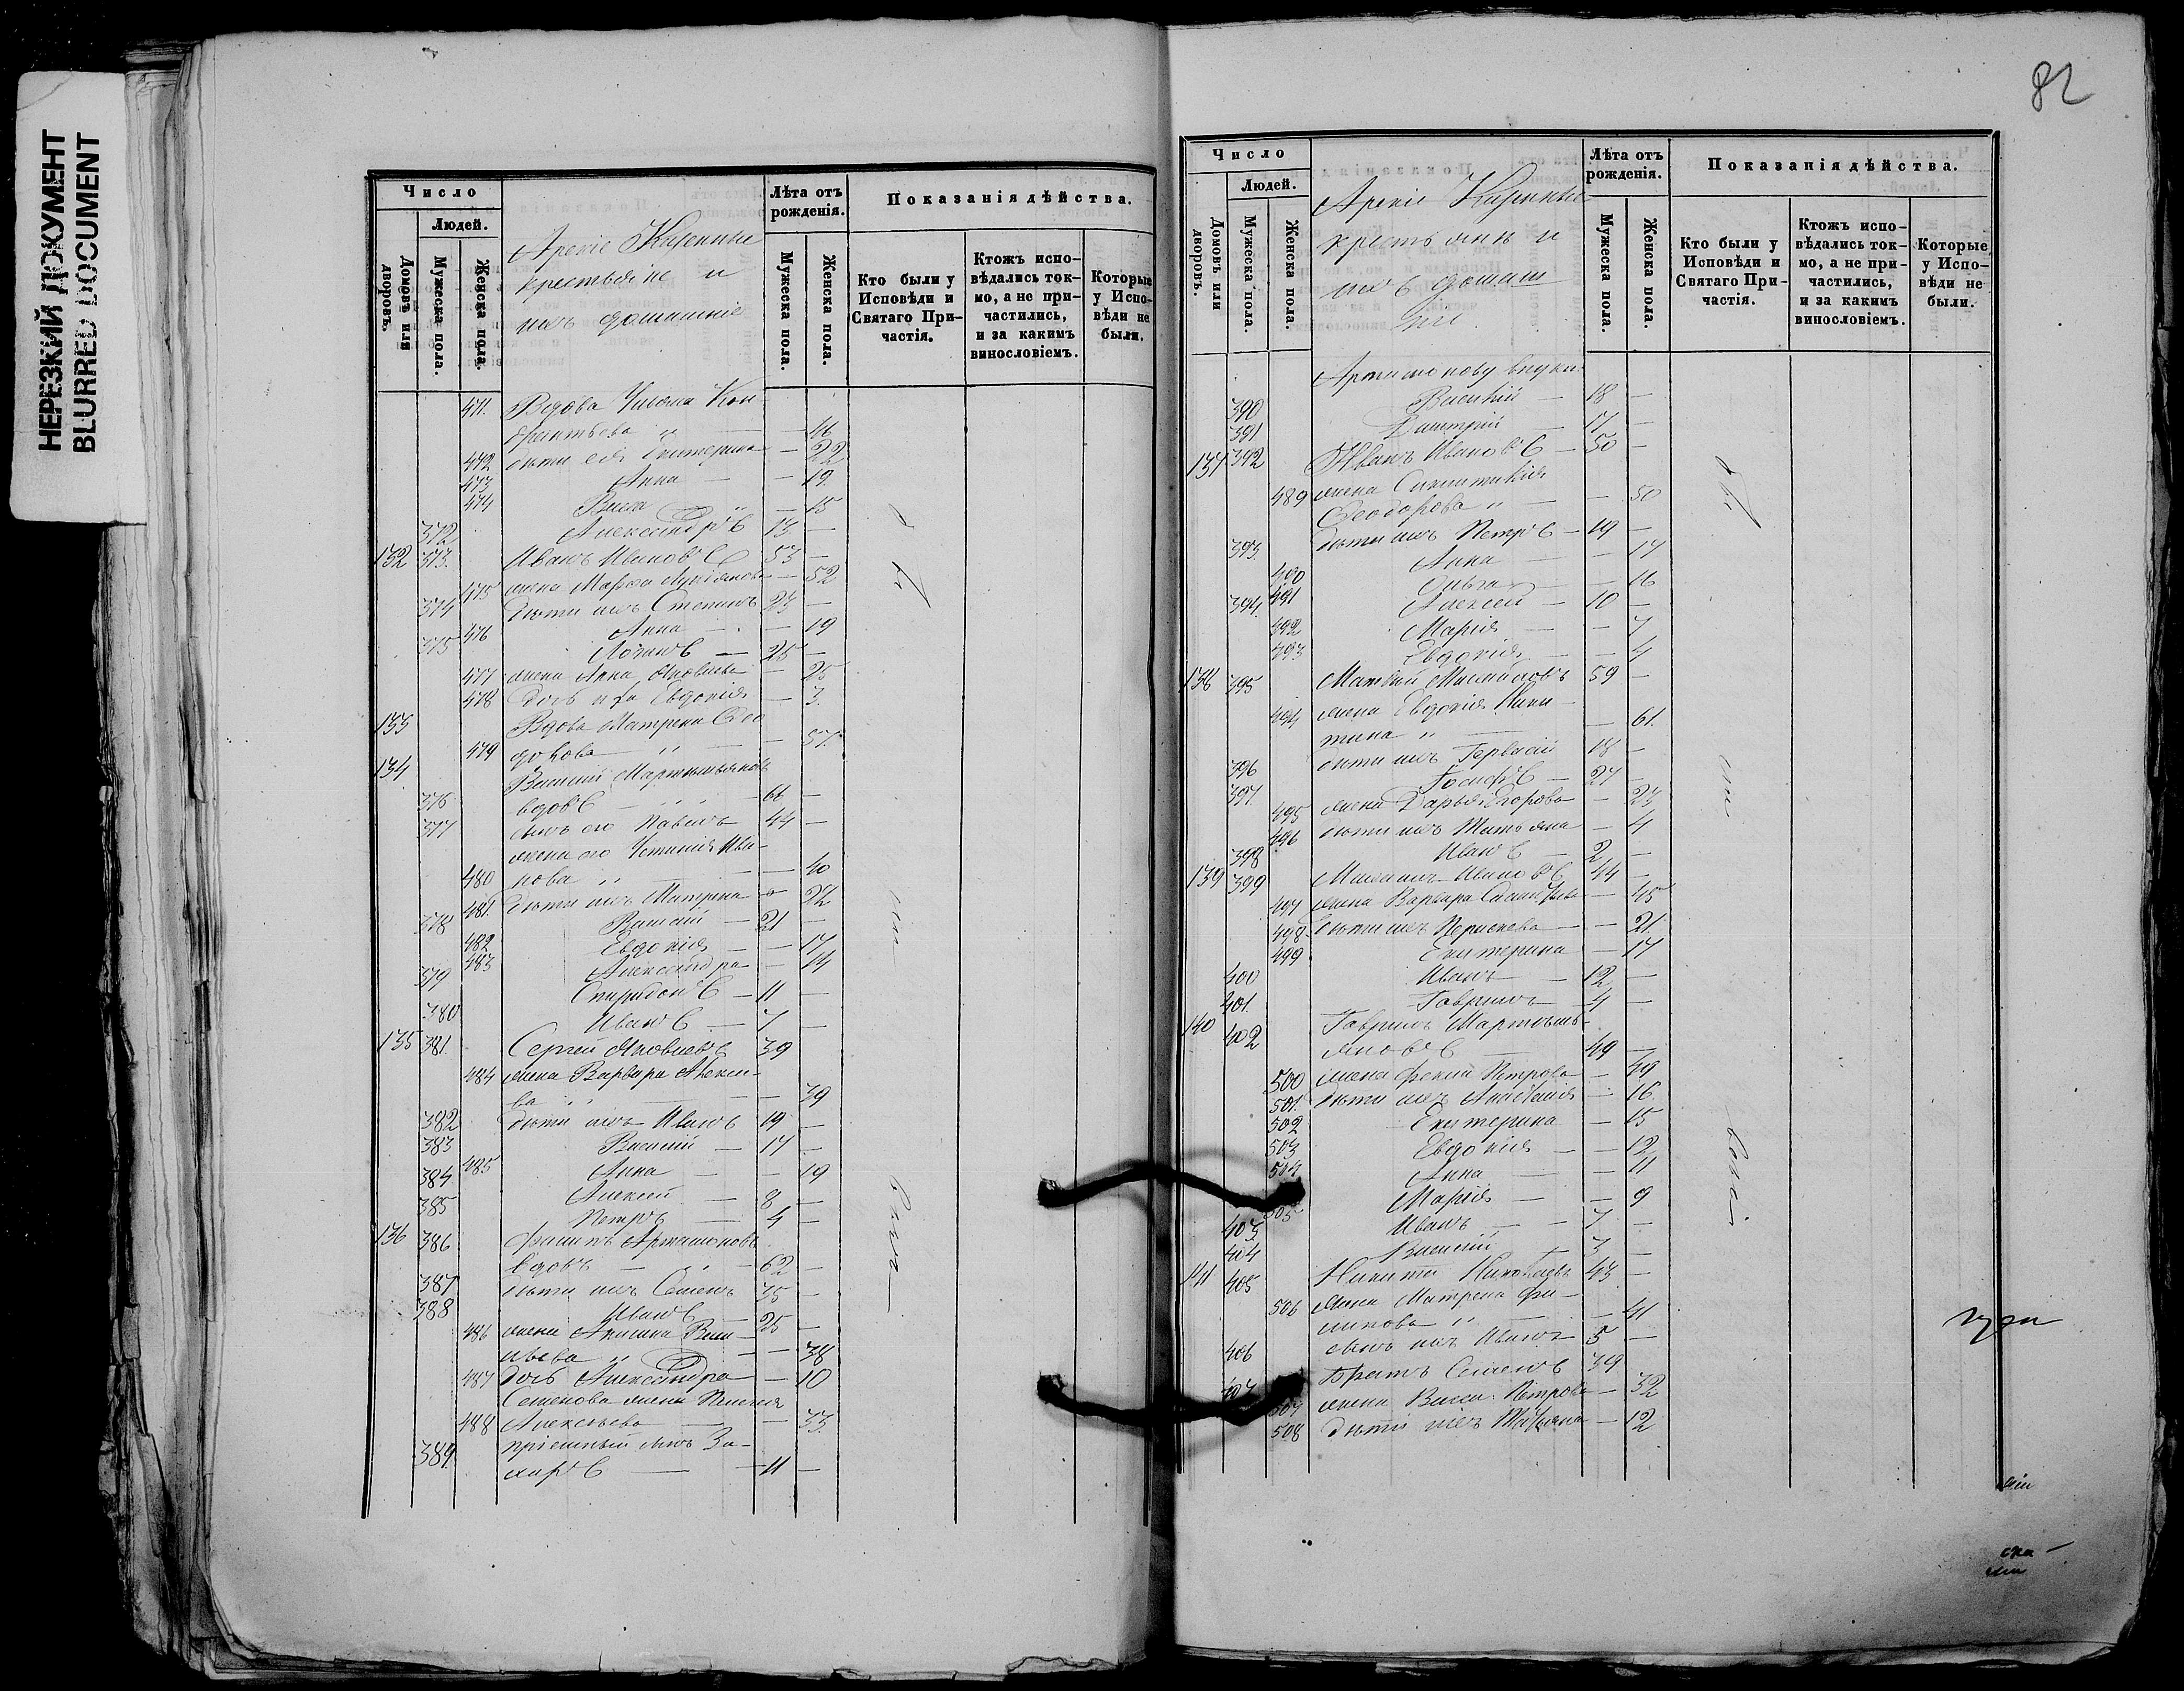 НЕРЕЗКИЙ ДОКУМЕНТ
BLURRED DOCUMENT
Число
Людей.
Домовъ или дворовъ.
Мужеска пола.
Женска пола.
Казенные
крестьяне и
ихъ домашніе
Лѣта отъ рожденія.
Мужеска пола.
Женска пола.
Показанія дѣйства.
Кто были у Исповѣди и Святаго Причастія.
Ктожъ исповѣдались токмо, а не причастились, и за какимъ винословіемъ.
Которые у Исповѣди не были.
471. Вдова
46
472 дѣти ея Екатерина — 22
473 Анна — — 19
474 Васса — 15
372 Александръ 13 —
132 373. Иванъ Ивановъ 53 —
475 жена Марѳа Лукіянова — 52
374 дѣти ихъ Степанъ 23 —
476 Анна — — 19
375 Логинъ — 25 —
477 жена Анна Яковлева — 25
478 дочь ихъ Евдокія — 3.
133 Вдова Матрена Ѳео-
479 — 57.
134 Василій Мартиміановъ
376 вдовъ — 66 —
377 сынъ его Павелъ 44 —
жена его Устинія Ива-
480 нова — — 40
481. дѣти ихъ Матрена — 22
378 Василій — 21 —
482 Евдокія — — 17
483 Александра — 14
379 Спиридонъ — 11 —
380 Иванъ — 7 —
135 381. Сергей Яковлевъ 39
484 жена Варвара Алексѣ-
ва — — 39
382 дѣти ихъ Иванъ 19 —
383 Василій — 17 —
485 Анна — — 19
384 Алексѣй — 8 —
385 Петръ — 4 —
136 386 Филипъ Артамоновъ
вдовъ — 62 —
387 дѣти ихъ Семенъ 35 —
388 Иванъ — 25 —
486 жена Аксинья Васи-
льева — — 38
487 дочь Александра — 10
Семенова жена Пелагея
488 Алексѣева — — 33
389. пріемный сынъ За-
харъ — 11 —
82
Число
Людей.
Домовъ или дворовъ.
Мужеска пола.
Женска пола.
Казенные
крестьяне и
ихъ домаш
ніе.
Лѣта отъ рожденія.
Мужеска пола.
Женска пола.
Показанія дѣйства.
Кто были у Исповѣди и Святаго Причастія.
Ктожъ исповѣдались токмо, а не причастились, и за какимъ винословіемъ.
Которые у Исповѣди не были.
Артамонову внуки
390 Василій — 18 —
391 Дмитрій — 17 —
137 392 Иванъ Ивановъ — 50 —
489 жена Синклитикія
Ѳеодорова — — 50
393. дѣти ихъ Петръ — 19 —
490 Анна — — 17
491 Ольга — — 16
394. Алексей — 10 —
492 Марія — — 7
493 Евдокія — — 4
138 395 Матвей Михайловъ 59 —
494 жена Евдокія Ники-
тина — — 61.
396 дѣти ихъ Гервасій 18 —
397 Іосифъ — 27 —
495 жена Дарья Егорова — 23
496 дѣти ихъ Татьяна — 4
398 Иванъ — 2 —
139 399 Ивановъ 44 —
497 жена Варвара — 45
498 дѣти ихъ Парасковья — 21.
499 Екатерина — 17
400 Иванъ — 12 —
401. Гаврилъ — 4 —
140 402 Гаврилъ Мартемь-
яновъ — 49 —
500 жена Ѳекла Петрова — 49
501. дѣти ихъ Анастасія — 16.
502 Екатерина — 15
503 Евдокія — — 12
504 Анна — — 11
505 Марія — — 9
403 Иванъ — — 7 —
404 Василій — 3 —
141 405 Никита 43 —
506 жена Матрена Фи-
липова — — 41
406 сынъ ихъ Иванъ 5 —
407 Братъ Семенъ 39
507 жена Васса Петрова — 32
508 дѣти ихъ Татьяна — 12